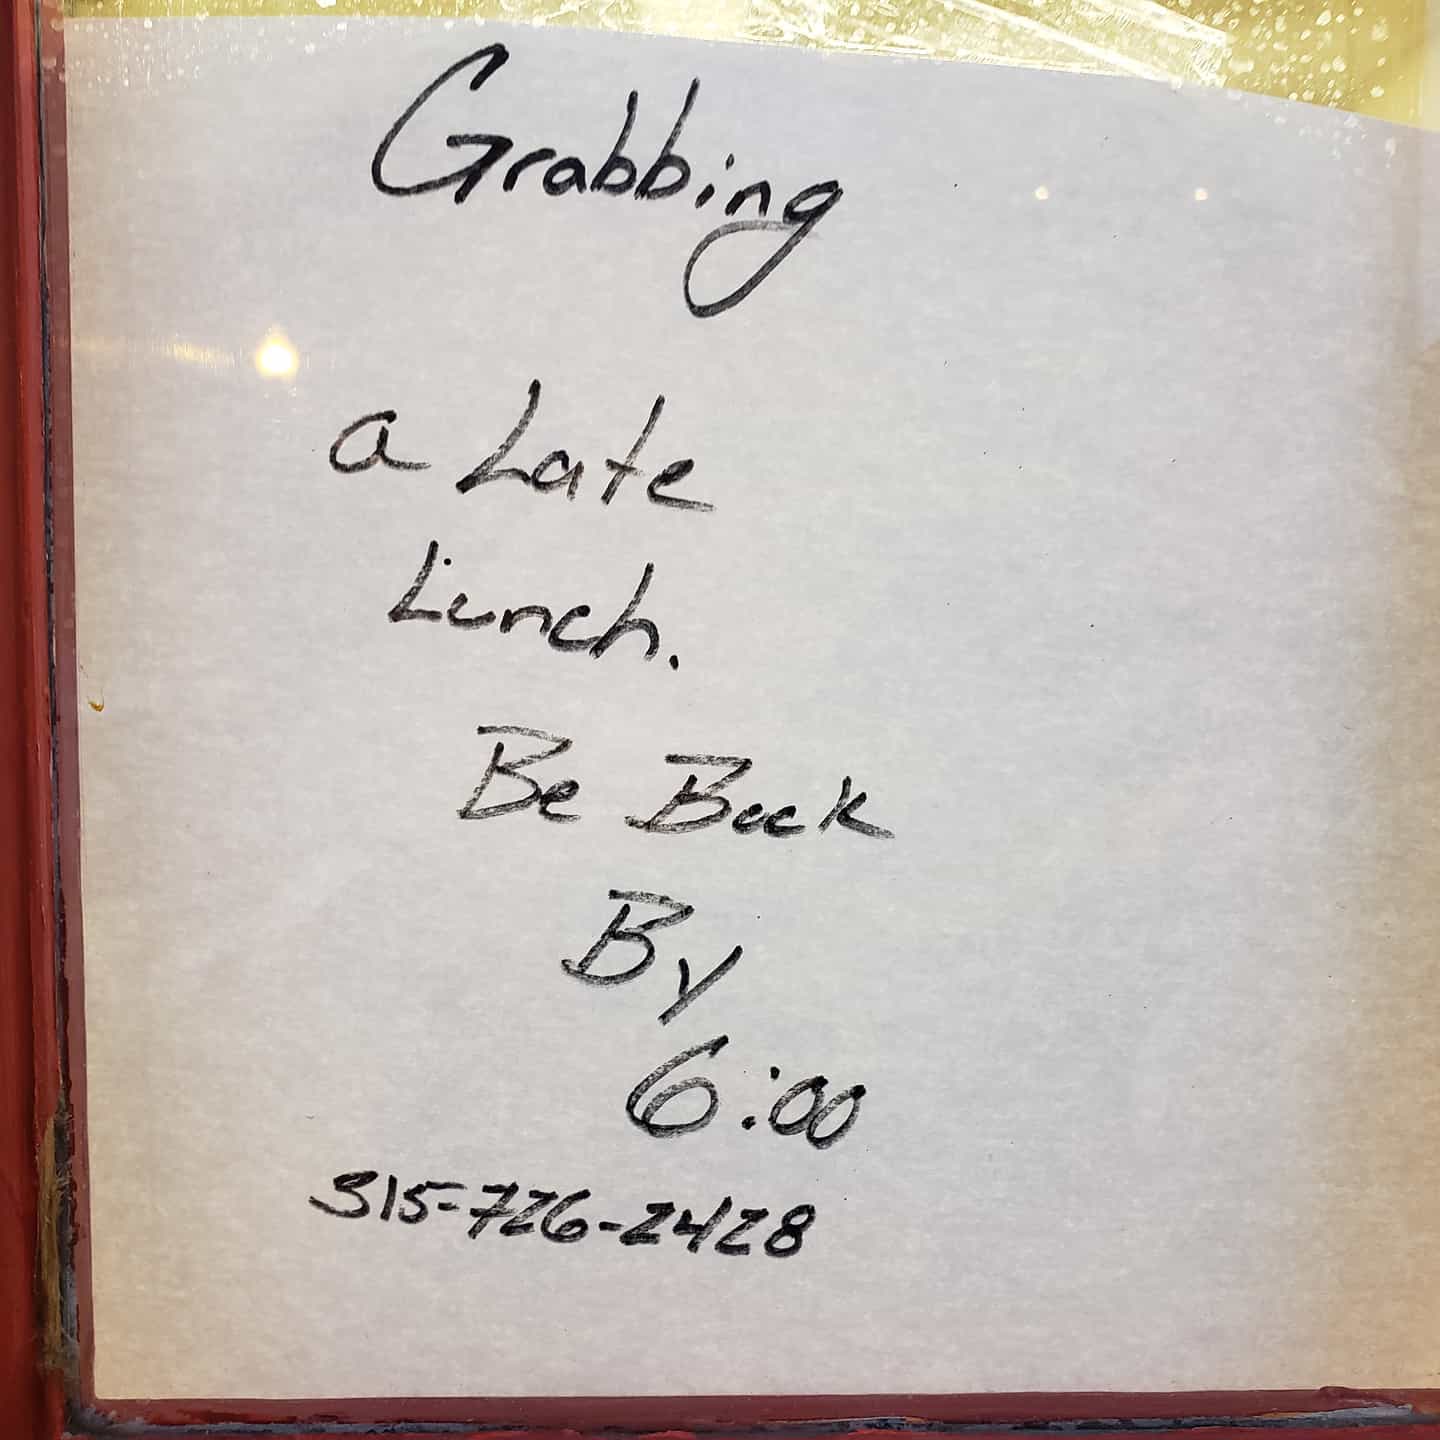 Grabbing
a Late
Lunch.
Be Back
By
6:00
315-726-2428